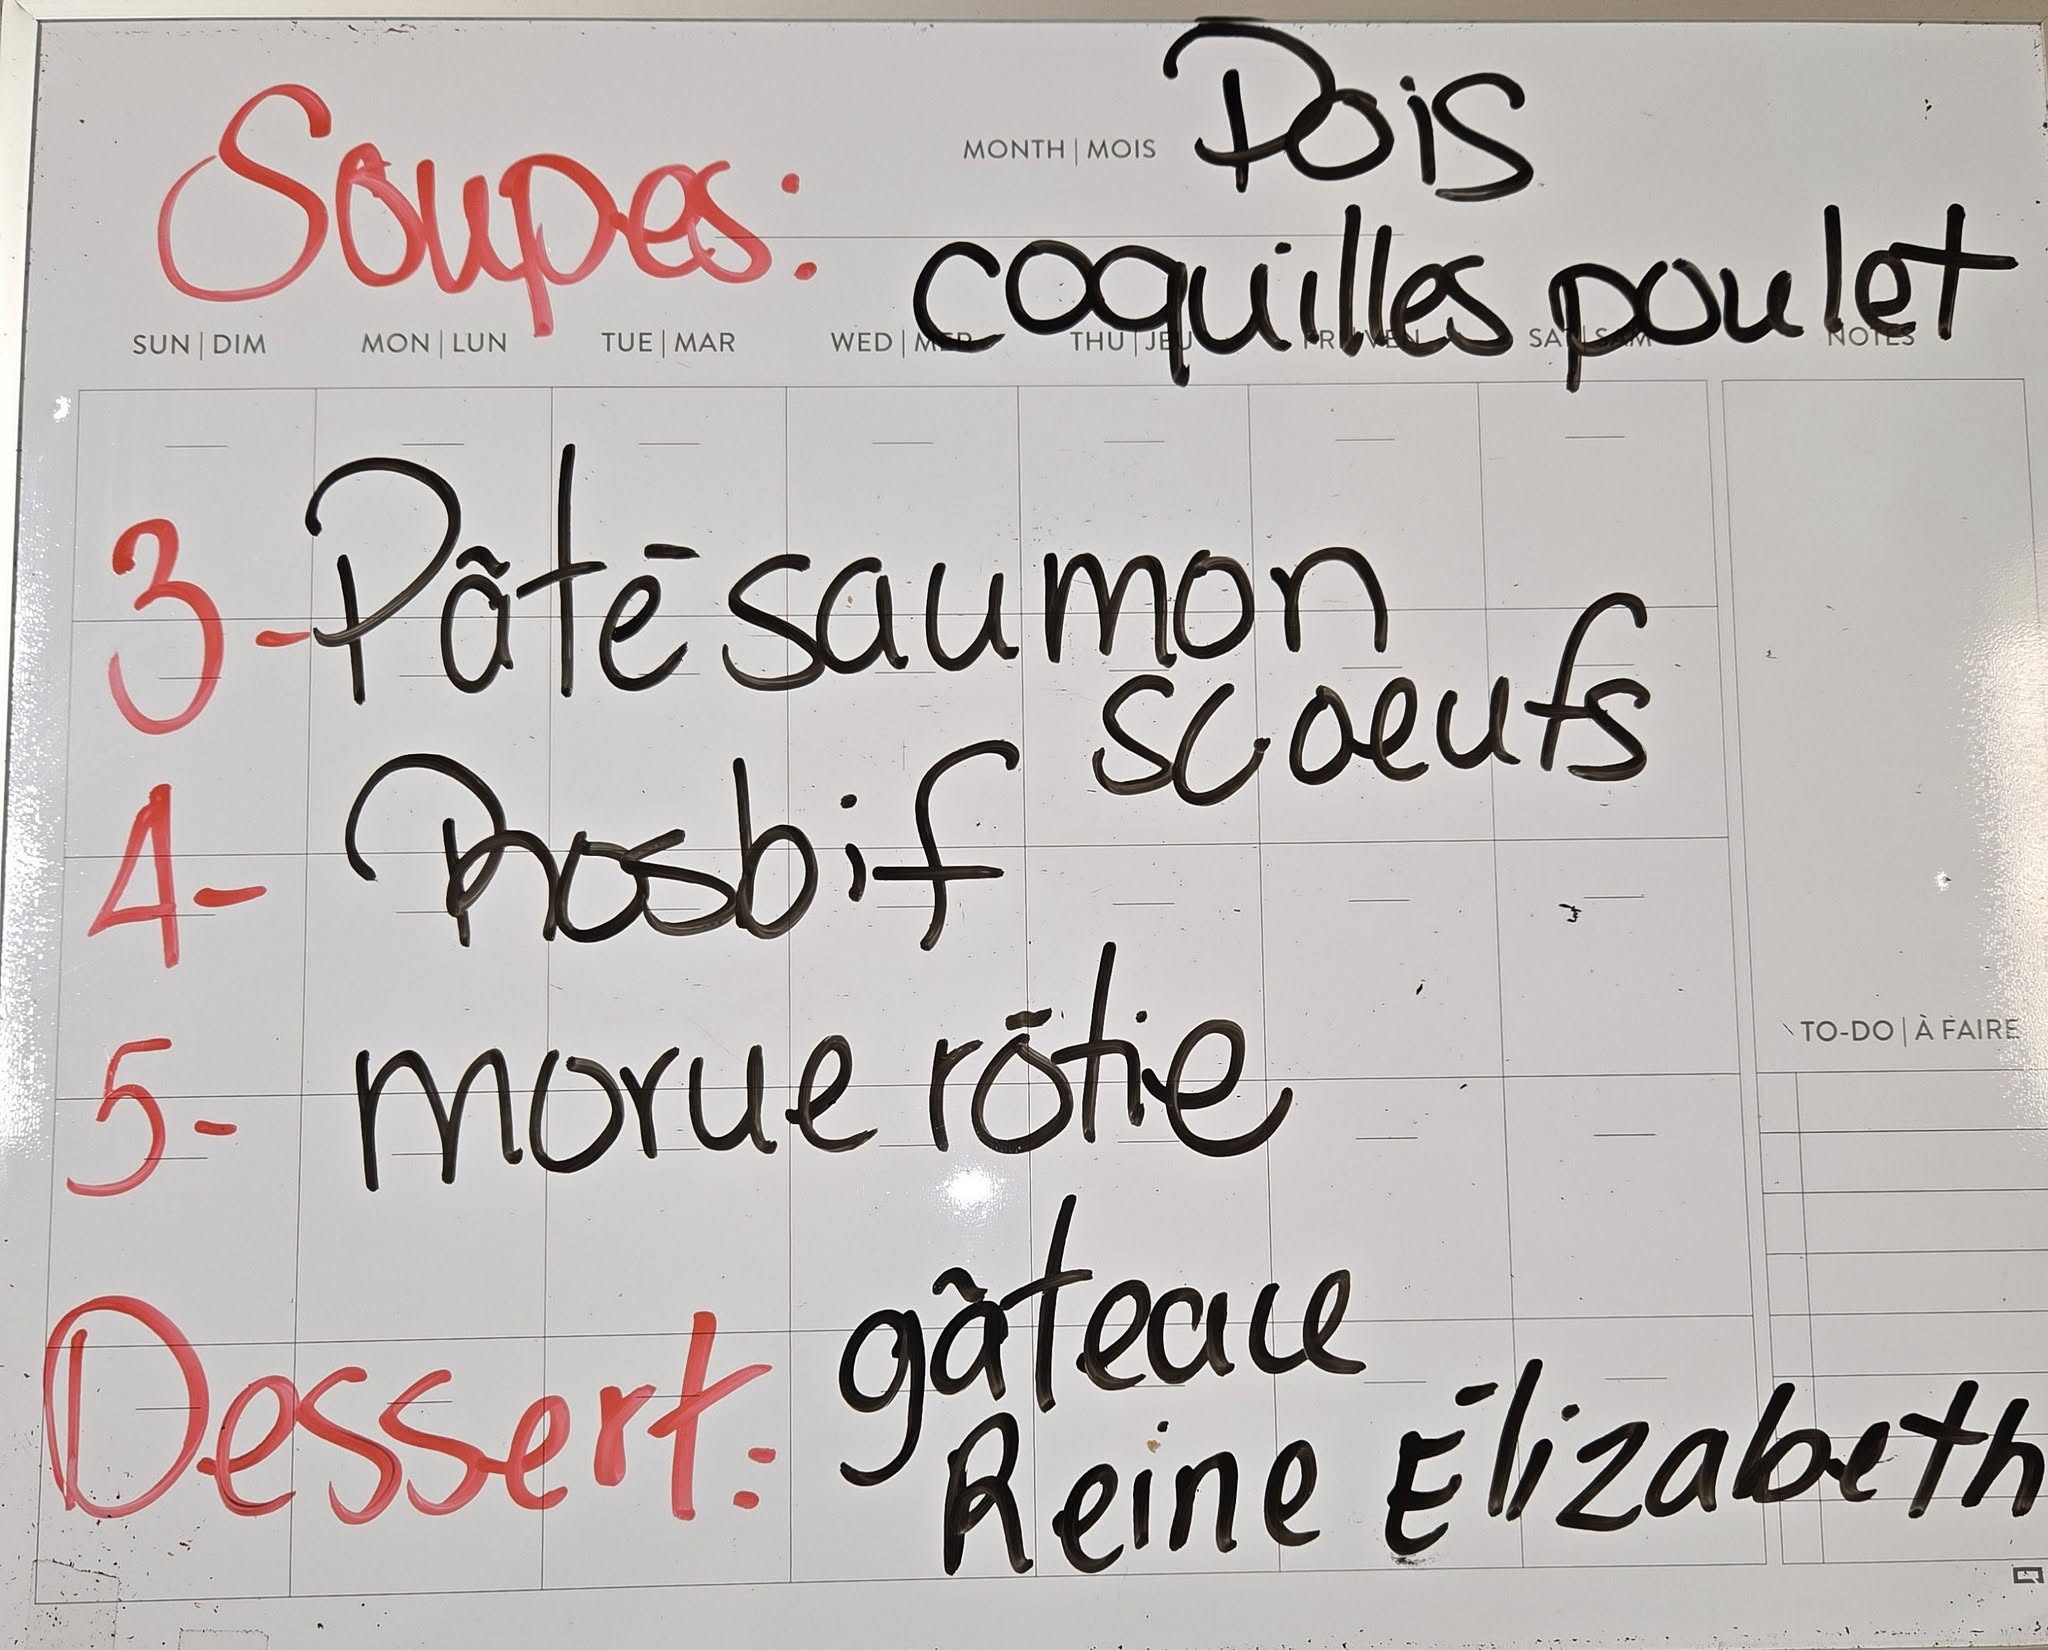 Soupes: Pois
MONTH | MOIS
coquilles poulet
SUN | DIM MON | LUN TUE | MAR WED | MER THU | JEU FRI | VEN SAT | SAM NOTES
3- Pâté saumon
sc. oeufs
4- Rosbif
5- morue rôtie
TO-DO | À FAIRE
Dessert: gâteau
Reine Élizabeth